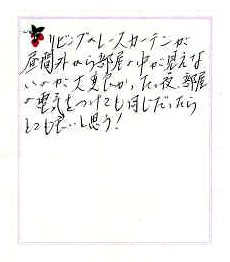 リビングのレースカーテンが
昼間外から部屋の中が見えな
いのが大変良かった。夜、部屋
の電気をつけても同じだったら
とても良いと思う!